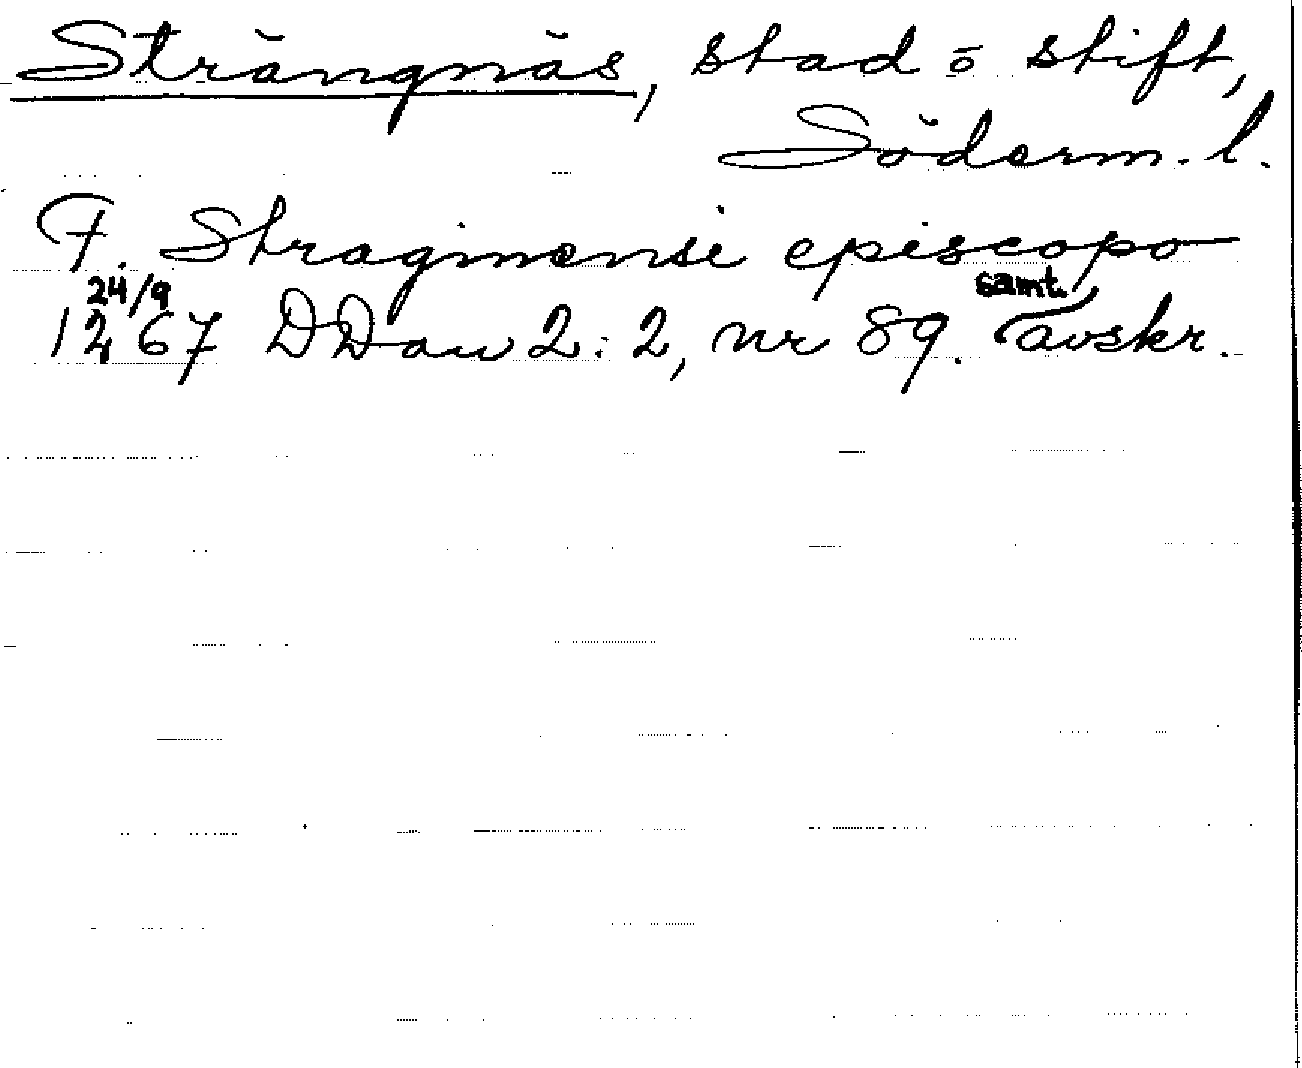 Strängnäs, stad o stift,
Söderm. l.
F. Straginensi episcopo
24/9 samt.
1267 DDan 2:2, nr 89. avskr.